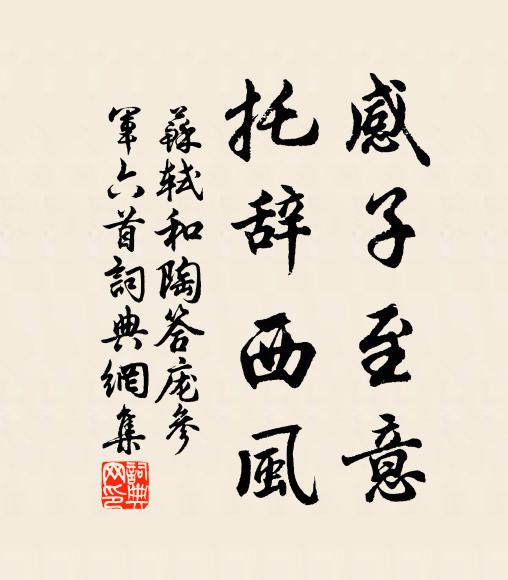 感子至意
托辞西風
蘇軾和陶答庞參
軍六首詞典網集
詞典
网印